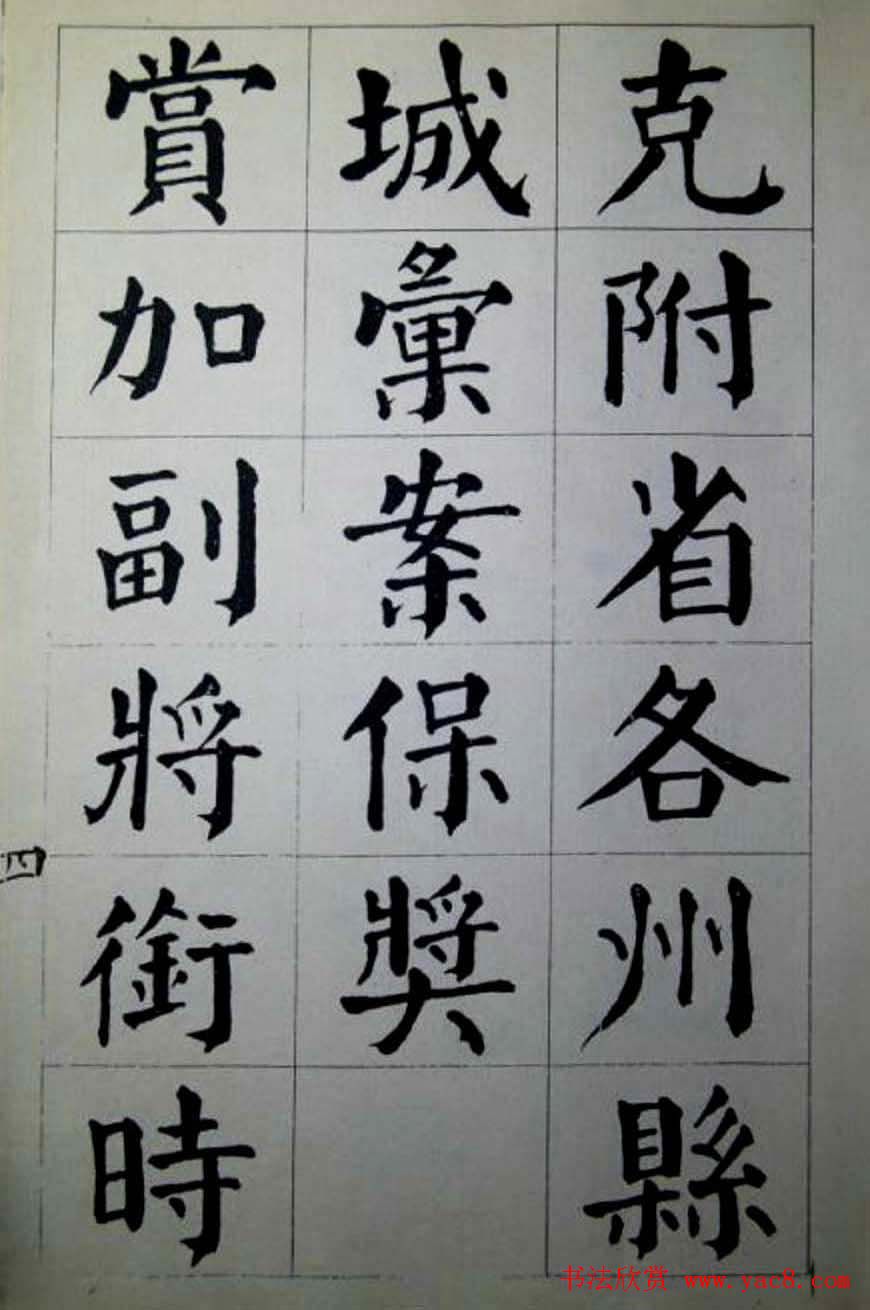 克附省各州縣
城彙案保奬
賞加副將銜時
四
书法欣赏 www.yac8.com